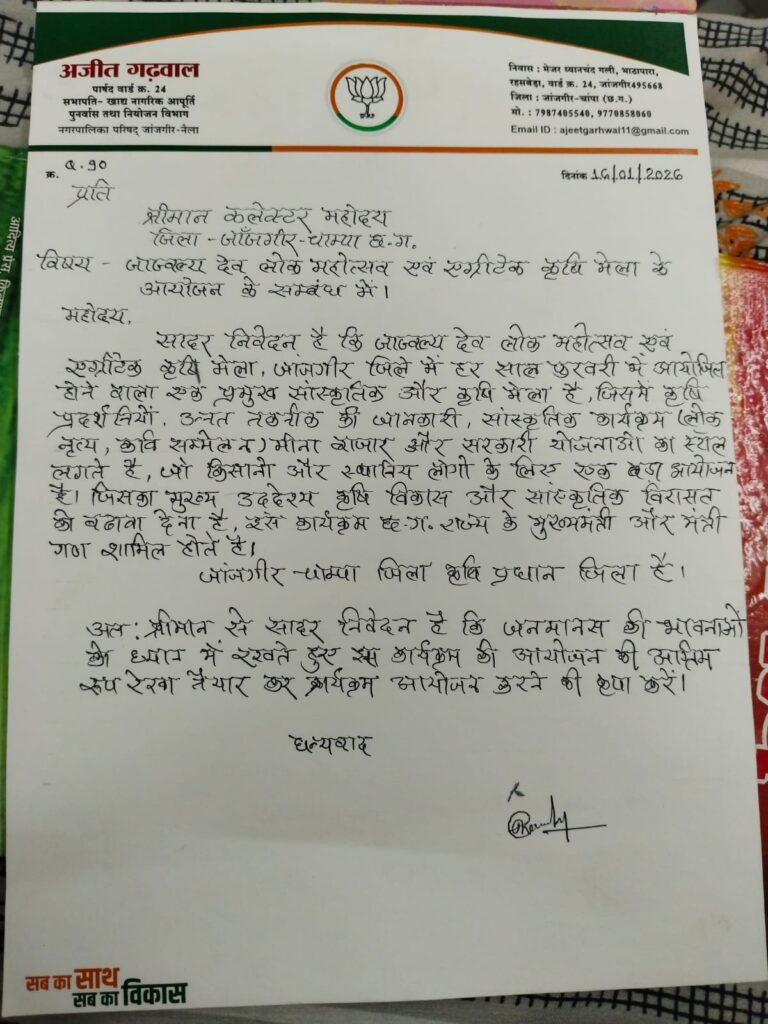 अजीत गढ़वाल
पार्षद वार्ड क्र. 24
सभापति- खाद्य नागरिक आपूर्ति
पुनर्वास तथा नियोजन विभाग
नगरपालिका परिषद् जांजगीर-नैला
निवास : मेजर ध्यानचंद गली, भाठापारा,
रहसबेड़ा, वार्ड क्र. 24, जांजगीर495668
जिला : जांजगीर-चांपा (छ.ग.)
मो. : 7987405540, 9770858060
Email ID : ajeetgarhwal11@gmail.com
क्र. Q.90
दिनांक 16/01/2026
प्रति
श्रीमान कलेक्टर महोदय
जिला - जाँजगीर-चाम्पा छ.ग.
विषय - जाज्वल्य देव लोक महोत्सव एवं एग्रीटेक कृषि मेला के
आयोजन के सम्बंध में।
महोदय,
सादर निवेदन है कि जाज्वल्य देव लोक महोत्सव एवं
एग्रीटेक कृषि मेला, जांजगीर जिले में हर साल फरवरी में आयोजित
होने वाला एक प्रमुख सांस्कृतिक और कृषि मेला है, जिसमें कृषि
प्रदर्शनियों, उन्नत तकनीक की जानकारी, सांस्कृतिक कार्यक्रम (लोक
नृत्य, कवि सम्मेलन) मीना बाजार और सरकारी योजनाओं का स्टॉल
लगते है, जो किसानों और स्थानिय लोगों के लिए एक बड़ा आयोजन
है। जिसका मुख्य उद्देश्य कृषि विकास और सांस्कृतिक विरासत
को बढ़ावा देना है, इस कार्यक्रम छ.ग. राज्य के मुख्यमंत्री और मंत्री
गण शामिल होते है।
जांजगीर-चाम्पा जिला कृषि प्रधान जिला है।
अतः श्रीमान से सादर निवेदन है कि जनमानस की भावनाओं
को ध्यान में रखते हुए इस कार्यक्रम की आयोजन की अंतिम
रूप रेखा तैयार कर कार्यक्रम आयोजन करने की कृपा करें।
धन्यवाद
सब का साथ
सब का विकास